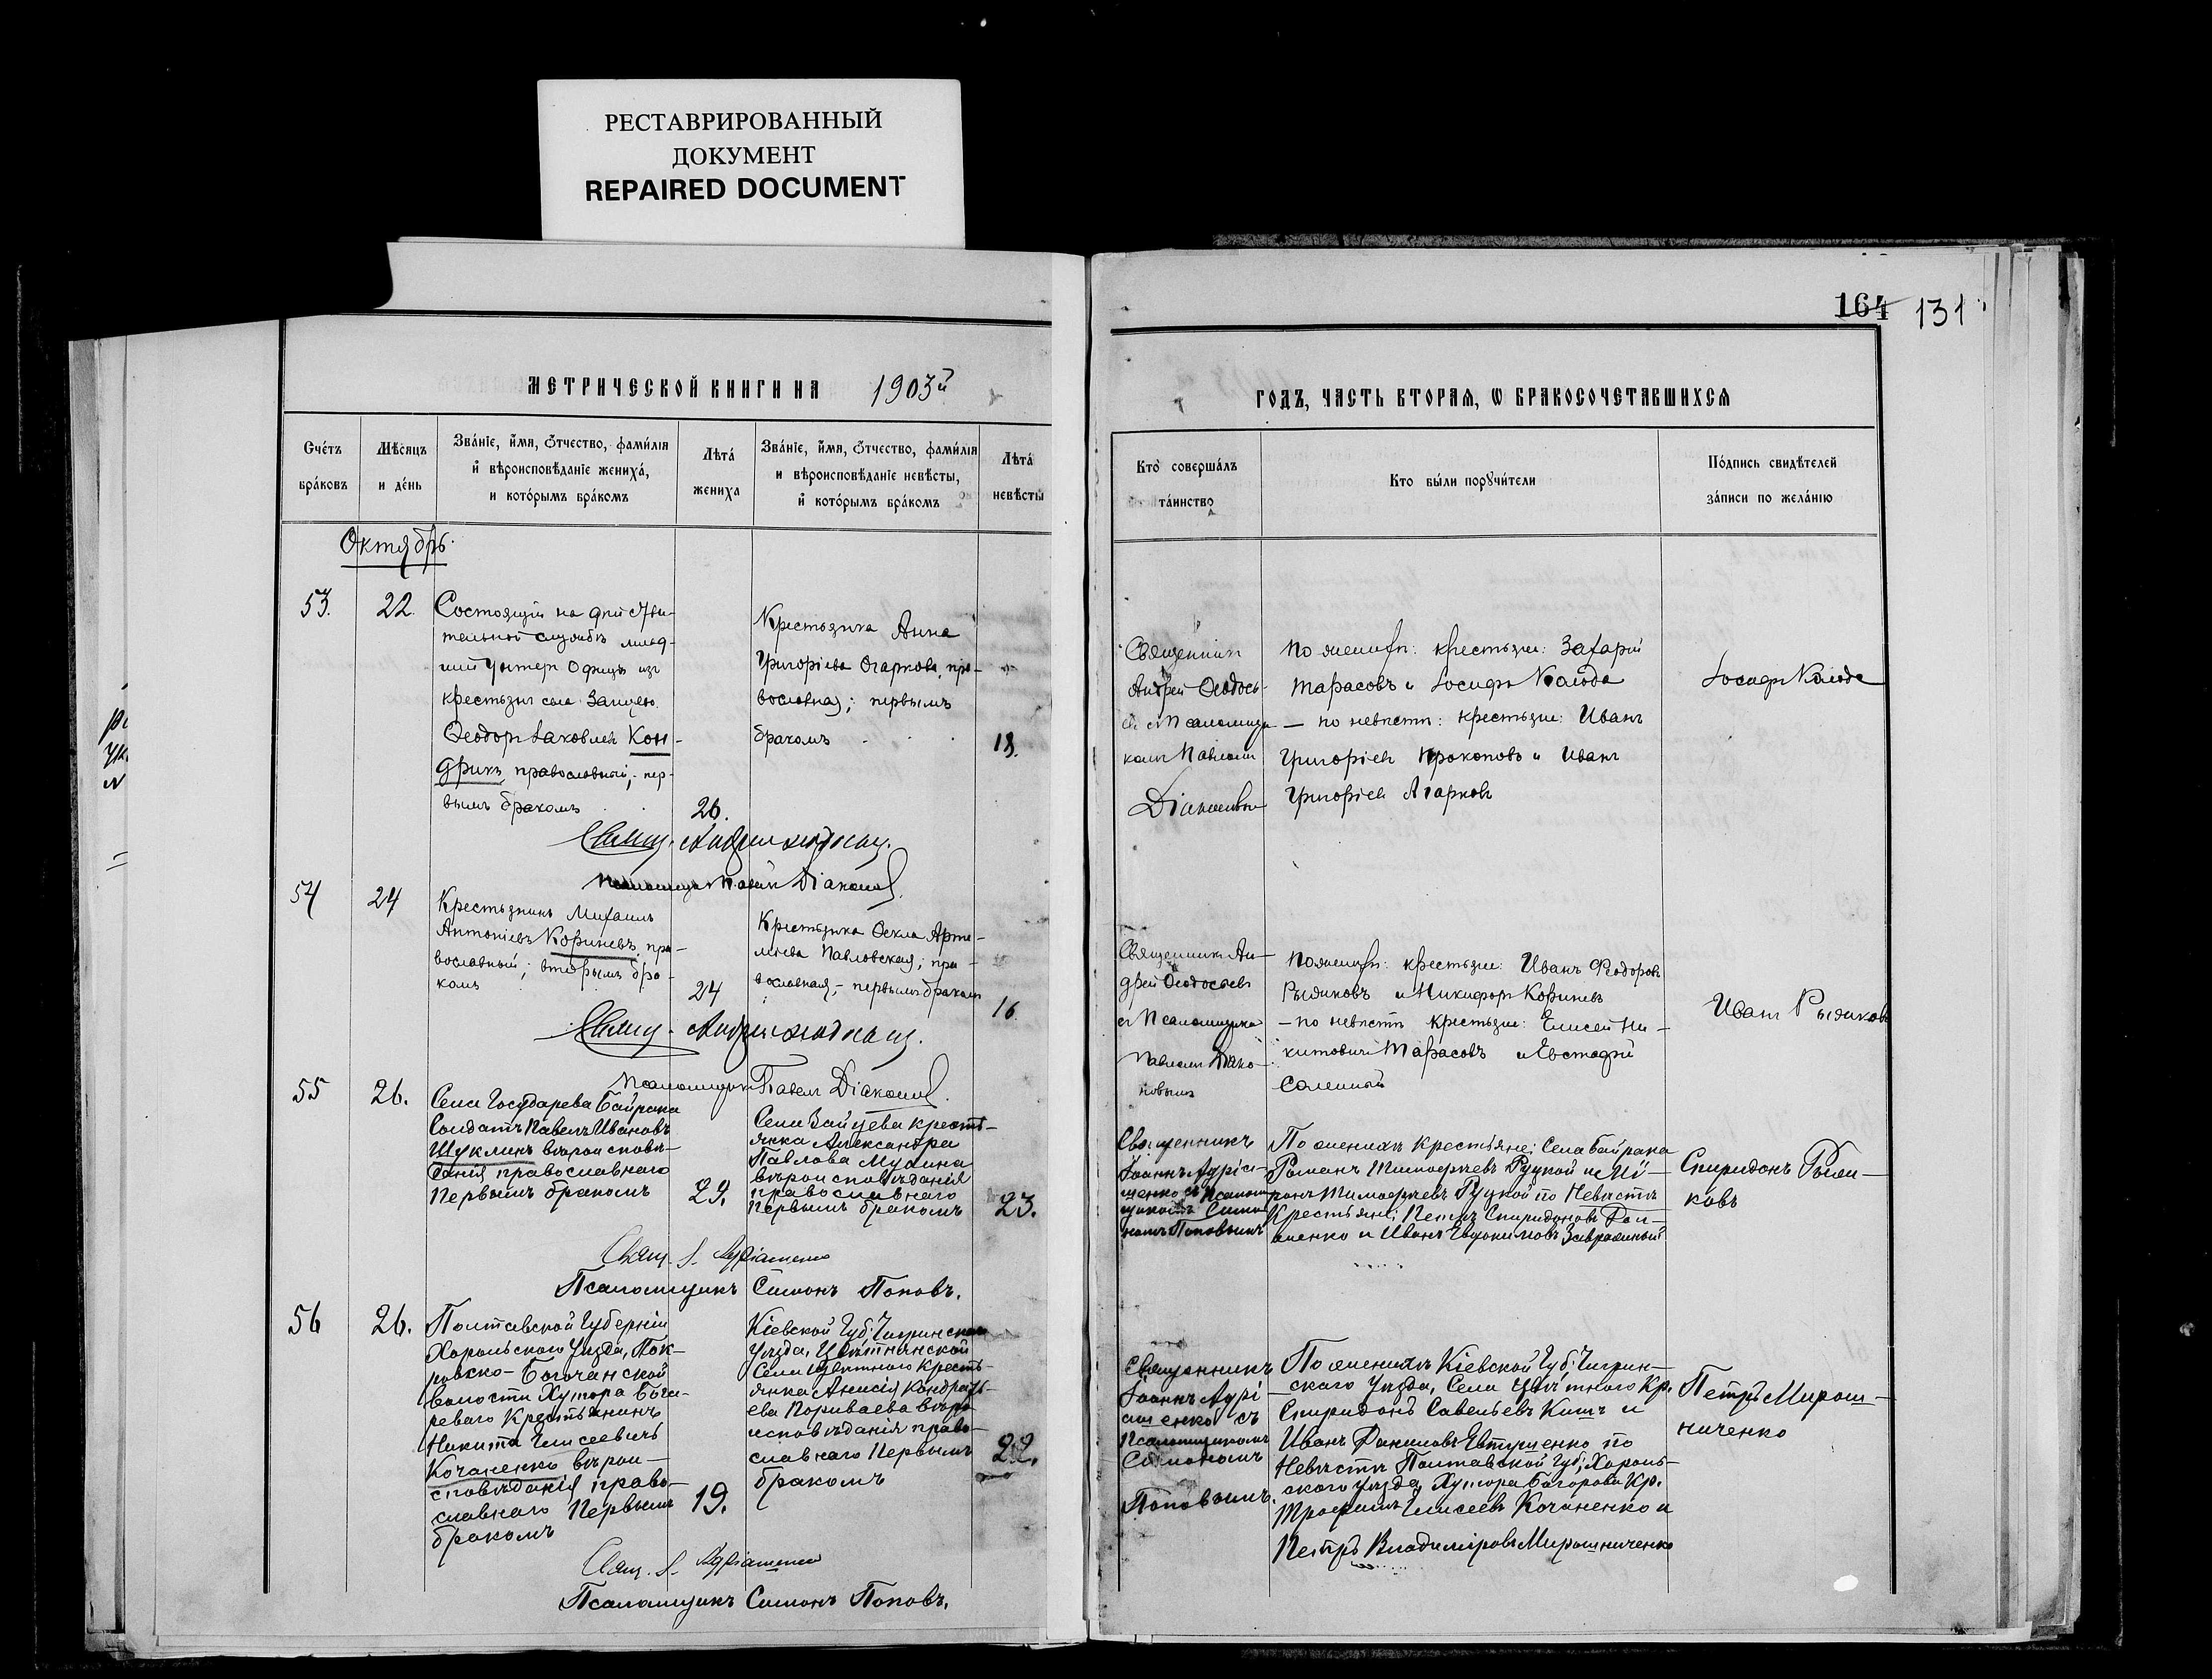 РЕСТАВРИРОВАННЫЙ
ДОКУМЕНТ
REPAIRED DOCUMENT
164 131
МЕТРИЧЕСКОЙ КНИГИ НА 1903й
ГОДЪ, ЧАСТЬ ВТОРАЯ, Ѡ БРАКОСОЧЕТАВШИХСЯ
Счетъ
браковъ
Мѣсяцъ
и день
Званіе, имя, отчество, фамилія
и вѣроисповѣданіе жениха,
и которымъ бракомъ
Лѣта
жениха
Званіе, имя, отчество, фамилія
и вѣроисповѣданіе невѣсты,
и которымъ бракомъ
Лѣта
невѣсты
Кто совершалъ
таинство
Кто были поручители
Подпись свидѣтелей
записи по желанію
Октябрь.
53. 22.
Состоящій на дѣйстви-
тельной службѣ млад-
шій Унтеръ Офицеръ изъ
крестьянъ села Зайцево
Ѳеодоръ Іаковлевъ Кон-
дрикъ, православный; пер-
вымъ бракомъ
26.
Крестьянка Анна
Григоріева Огаркова, пра-
вославная; первымъ
бракомъ
18.
Священникъ
Андрей Ѳеодось-
евъ съ Псаломщи-
комъ Павломъ
Діаконовымъ
По женихѣ: крестьяне: Захарій
Тарасовъ и Іосифъ Колода
— по невѣстѣ: крестьяне: Иванъ
Григоріевъ Прокоповъ и Иванъ
Григоріевъ Агарковъ
Іосифъ Колода
Псаломщикъ Павелъ Діаконовъ.
54 24
Крестьянинъ Михаилъ
Антоніевъ Кориневъ, пра-
вославный; вторымъ бра-
комъ
24
Крестьянка Ѳекла Арте-
міева Павловская; пра-
вославная, – первымъ бракомъ
16
Священникъ Ан-
дрей Ѳеодосьевъ
съ Псаломщикомъ
Павломъ Діако-
новымъ
По женихѣ: крестьяне: Иванъ Ѳеодоровъ
Рыжковъ и Никифоръ Кориневъ
— по невѣстѣ крестьяне: Елисей Ни-
китовичъ Тарасовъ и Евстафій
Соленый
Иванъ Рыжковъ
Псаломщикъ Павелъ Діаконовъ.
55 26.
Села Государева Байрака
Солдатъ Павелъ Ивановъ
Шуклинъ вѣроисповѣ-
данія православнаго
Первымъ бракомъ
29.
Села Зайцева кресть-
янка Александра
Павлова Мухина
вѣроисповѣданія
православнаго
Первымъ бракомъ
23.
Священникъ
Іоаннъ Адріа-
шенко съ Псалом-
щикомъ Симо-
номъ Поповымъ
По женихѣ Крестьяне: Села Байрака
Романъ Тимоѳеевъ Руцкой и Мі-
ронъ Тимоѳеевъ Руцкой по Невѣстѣ
Крестьяне: Петръ Спиридоновъ
и Иванъ Евдокимовъ
Спиридонъ Рыжи-
ковъ
Свящ. І. Адріашенко
Псаломщикъ Симонъ Поповъ.
56 26.
Полтавской Губерніи
Хорольскаго Уѣзда, Пок-
ровско-Богачанской
Волости Хутора Бога-
реваго Крестьянинъ
Никита Елисеевичъ
Кочаненко вѣрои-
сповѣданія право-
славнаго Первымъ
бракомъ
19.
Кіевской Губ. Чигринскаго
Уѣзда, Цвѣтнянской
Села Цвѣтнаго Кресть-
янка Анисія Кондрать-
ева Пориваева вѣро-
исповѣданія право-
славнаго Первымъ
бракомъ
22.
Священникъ
Іоаннъ Адрі
ашенко съ
Псаломщикомъ
Симономъ
Поповымъ.
По женихѣ Кіевской Губ. Чигрин-
скаго Уѣзда, Села Цвѣтного Кр.
Спиридонъ Савельевъ Кишъ и
Иванъ Даниловъ Евтушенко по
Невѣстѣ Полтавской Губ, Хороль-
скаго Уѣзда, Хутора Богорова Кр.
Трофимъ Елисеевъ Кочаненко и
Петръ Владиміровъ Мирошниченко
Петръ Мирош-
ниченко
Свящ. І. Адріашенко
Псаломщикъ Симонъ Поповъ.